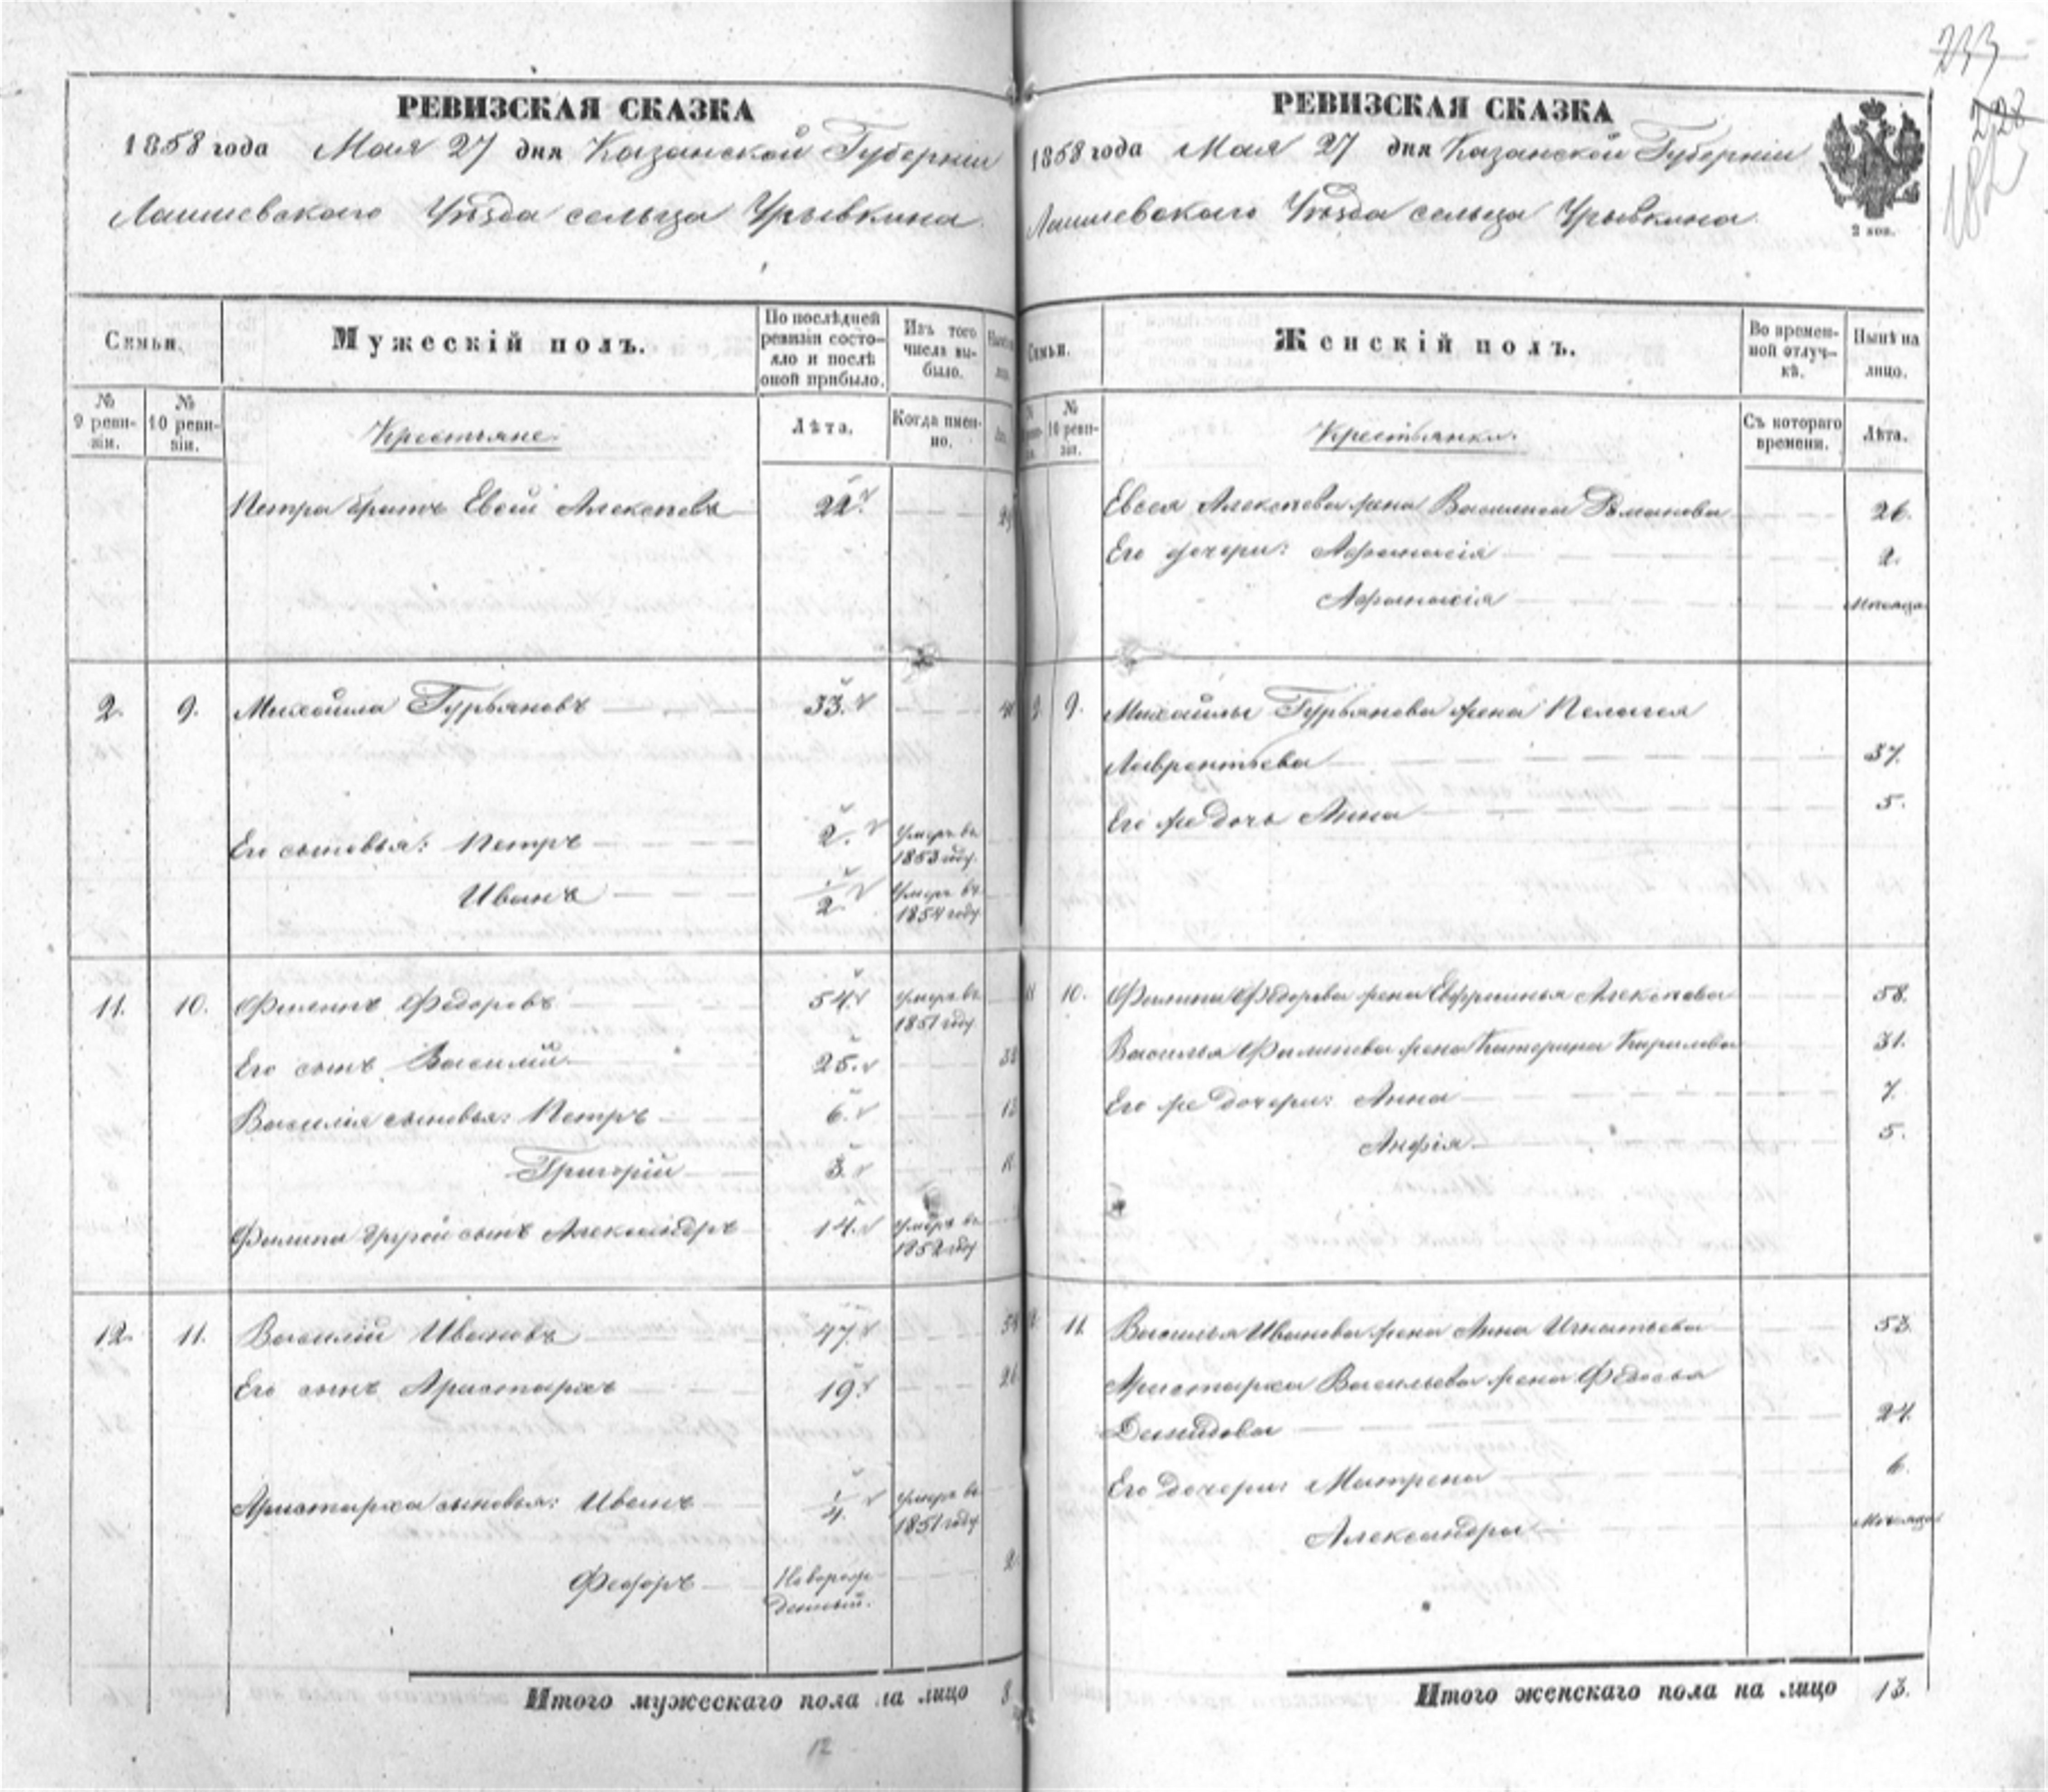 233
228
182
РЕВИЗСКАЯ СКАЗКА
1858 года Мая 27 дня Казанской Губерніи
Лаишевскаго Уѣзда сельца Урывкина
Семьи.
Мужескій полъ.
По послѣдней ревизіи состояло и послѣ оной прибыло.
Изъ того числа выбыло.
№ 9 ревизіи.
№ 10 ревизіи.
Крестьяне.
Лѣта.
Когда именно.
Петра братъ Евсей Алексѣевъ 22.
2. 9. Михайла Гурьяновъ 33.
Его сыновья: Петръ 2. Умеръ въ 1853 году.
Иванъ 1/2 Умеръ въ 1854 году
11. 10. Филипъ Федоровъ 54. Умеръ въ 1851 году
Его сынъ Василій 25. 33
Василія сыновья: Петръ 6.
Григорій 3. 11
Филипа другой сынъ Александръ 14. Умеръ въ 1852 году
12. 11. Василій Ивановъ 47.
Его сынъ Аристархъ 19. 26
Аристарха сыновья: Иванъ 1/4. Умеръ въ 1851 году
Федоръ Новорожденный. 2
Итого мужескаго пола на лицо 8
12
РЕВИЗСКАЯ СКАЗКА
1858 года Мая 27 дня Казанской Губерніи
Лаишевскаго Уѣзда сельца Урывкина
2 коп.
Семьи.
Женскій полъ.
Во временной отлучкѣ.
Нынѣ на лицо.
№ 10 ревизіи.
Крестьянки.
Съ котораго времени.
Лѣта.
Евсея Алексѣева жена Василиса Романова 26.
Его дочери: Афонасія 2.
Афонасія Мѣсяца
9. Михайлы Гурьянова жена Пелагея
Лаврентьева 37.
Его же дочь Анна 5.
10. Филипа Федорова жена Евфросинья Алексѣева 58.
Василья Филипова жена Катерина Кирилова 31.
Его же дочери: Анна 7.
Анфія 5.
11. Василья Иванова жена Анна Игнатьева 53.
Аристарха Васильева жена Федосья
Демидова 27.
Его дочери: Матрена 6.
Александра Мѣсяца
Итого женскаго пола на лицо 13.